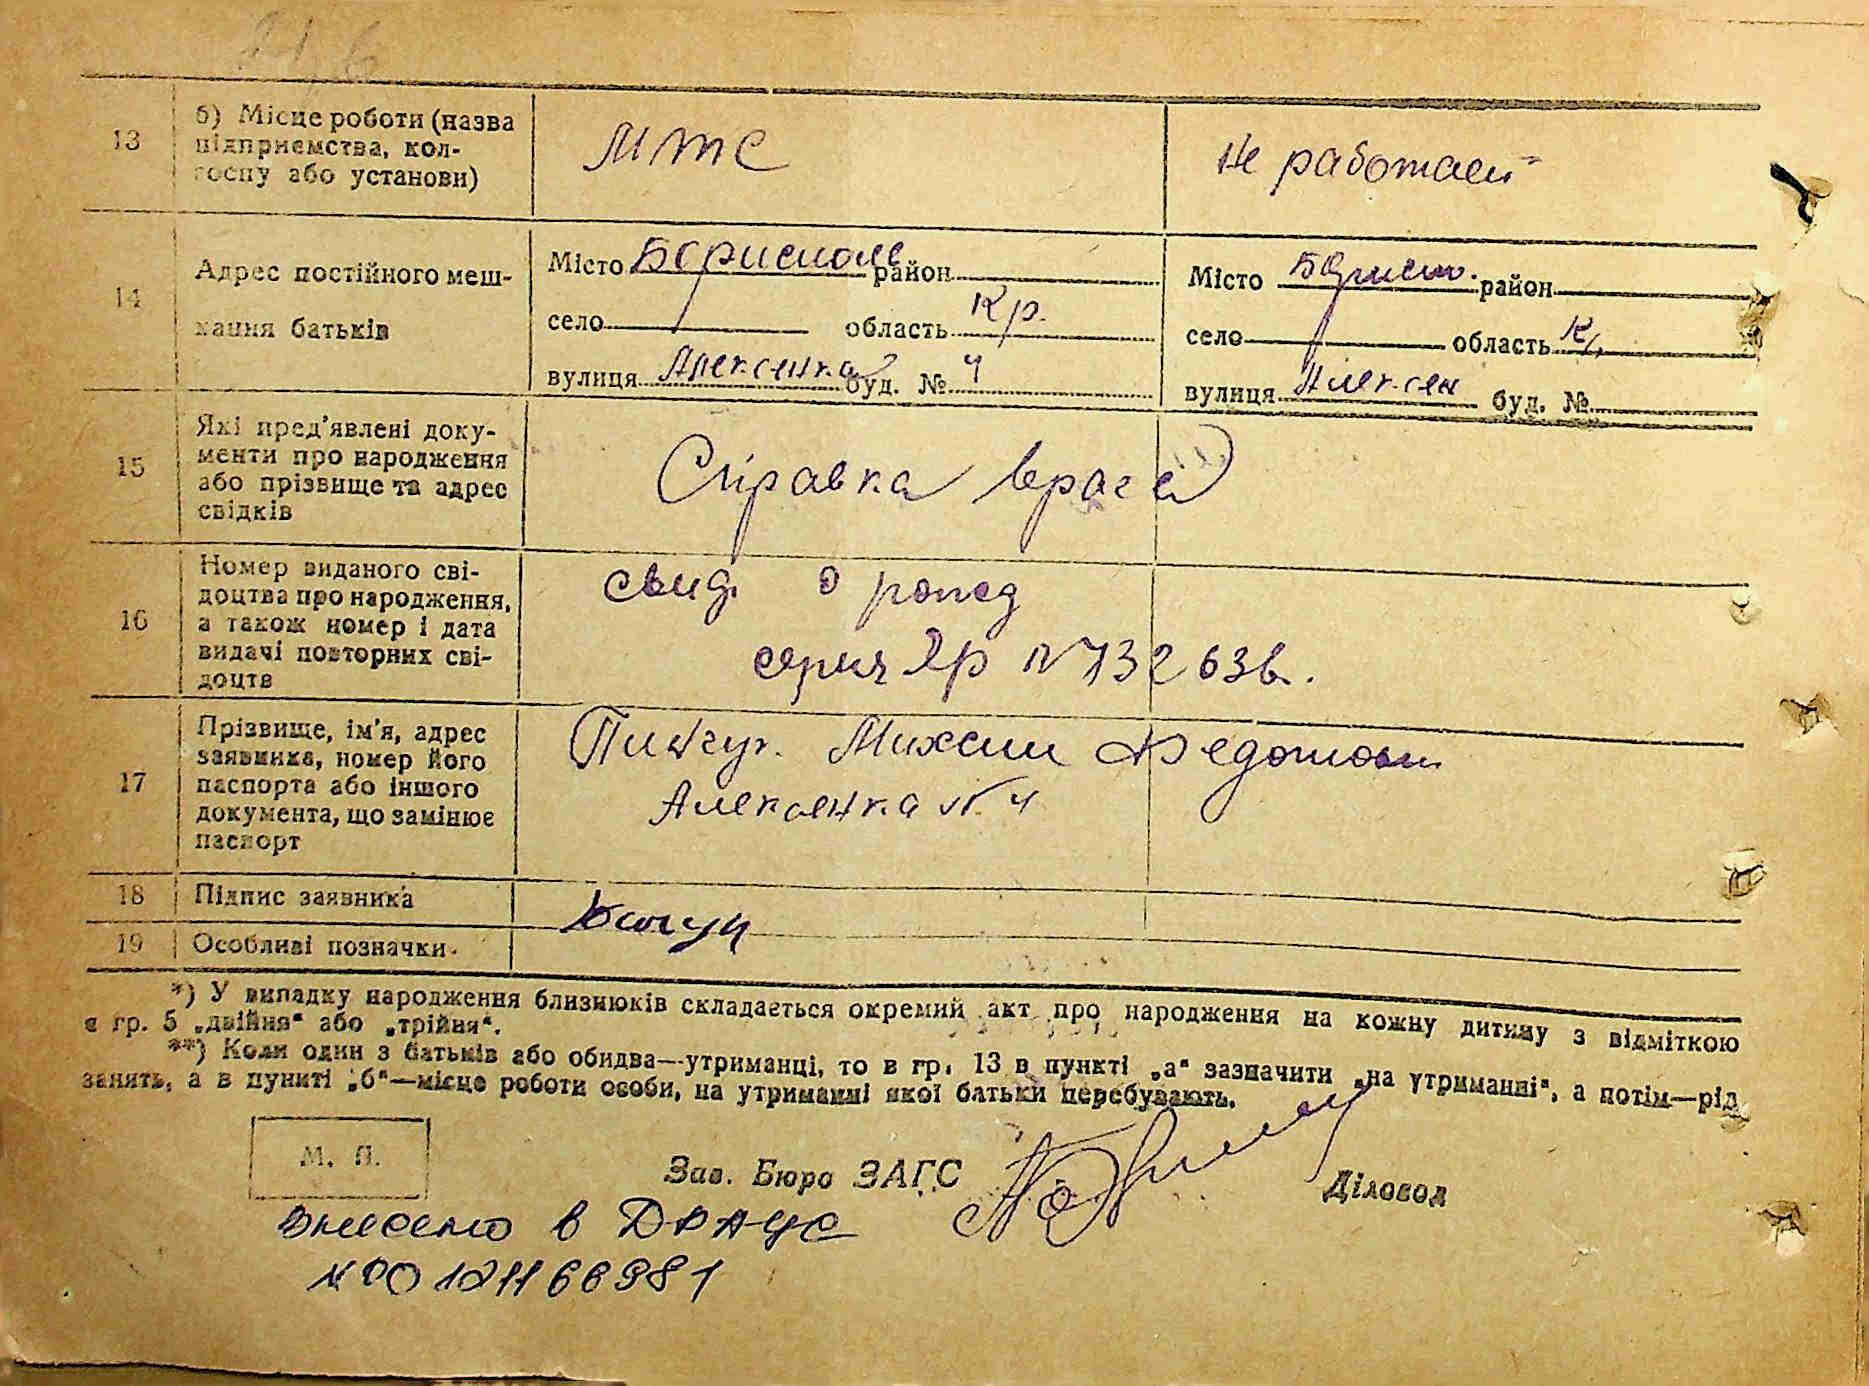 13
б) Місце роботи (назва
підприємства, кол-
госпу або установи)
МТС
Не работает
14
Адрес постійного меш-
кання батьків
Місто Борисполь район
село область
вулиця Алексенка буд. № 4
Місто район
село область
вулиця Алексен буд. №
15
Які пред'явлені доку-
менти про народження
або прізвище та адрес
свідків
Справка врача
16
Номер виданого сві-
доцтва про народження,
а також номер і дата
видачі повторних сві-
доцтв
свид. о рожд
серия №
17
Прізвище, ім'я, адрес
заявника, номер його
паспорта або іншого
документа, що замінює
паспорт
Михаил Федотович
Алексенка № 4
18
Підпис заявника
19
Особливі позначки
*) У випадку народження близнюків складається окремий акт про народження на кожну дитину з відміткою
в гр. 5 „двійня“ або „трійня“.
**) Коли один з батьків або обидва—утриманці, то в гр. 13 в пункті „а“ зазначити „на утриманні“, а потім—рід
занять, а в пункті „б“—місце роботи особи, на утриманні якої батьки перебувають.
М. П.
Зав. Бюро ЗАГС
Діловод
Внесено в ДРАЦС
№00121166981